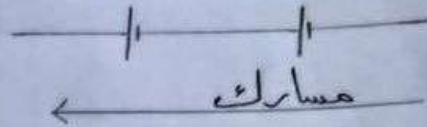 مسارك